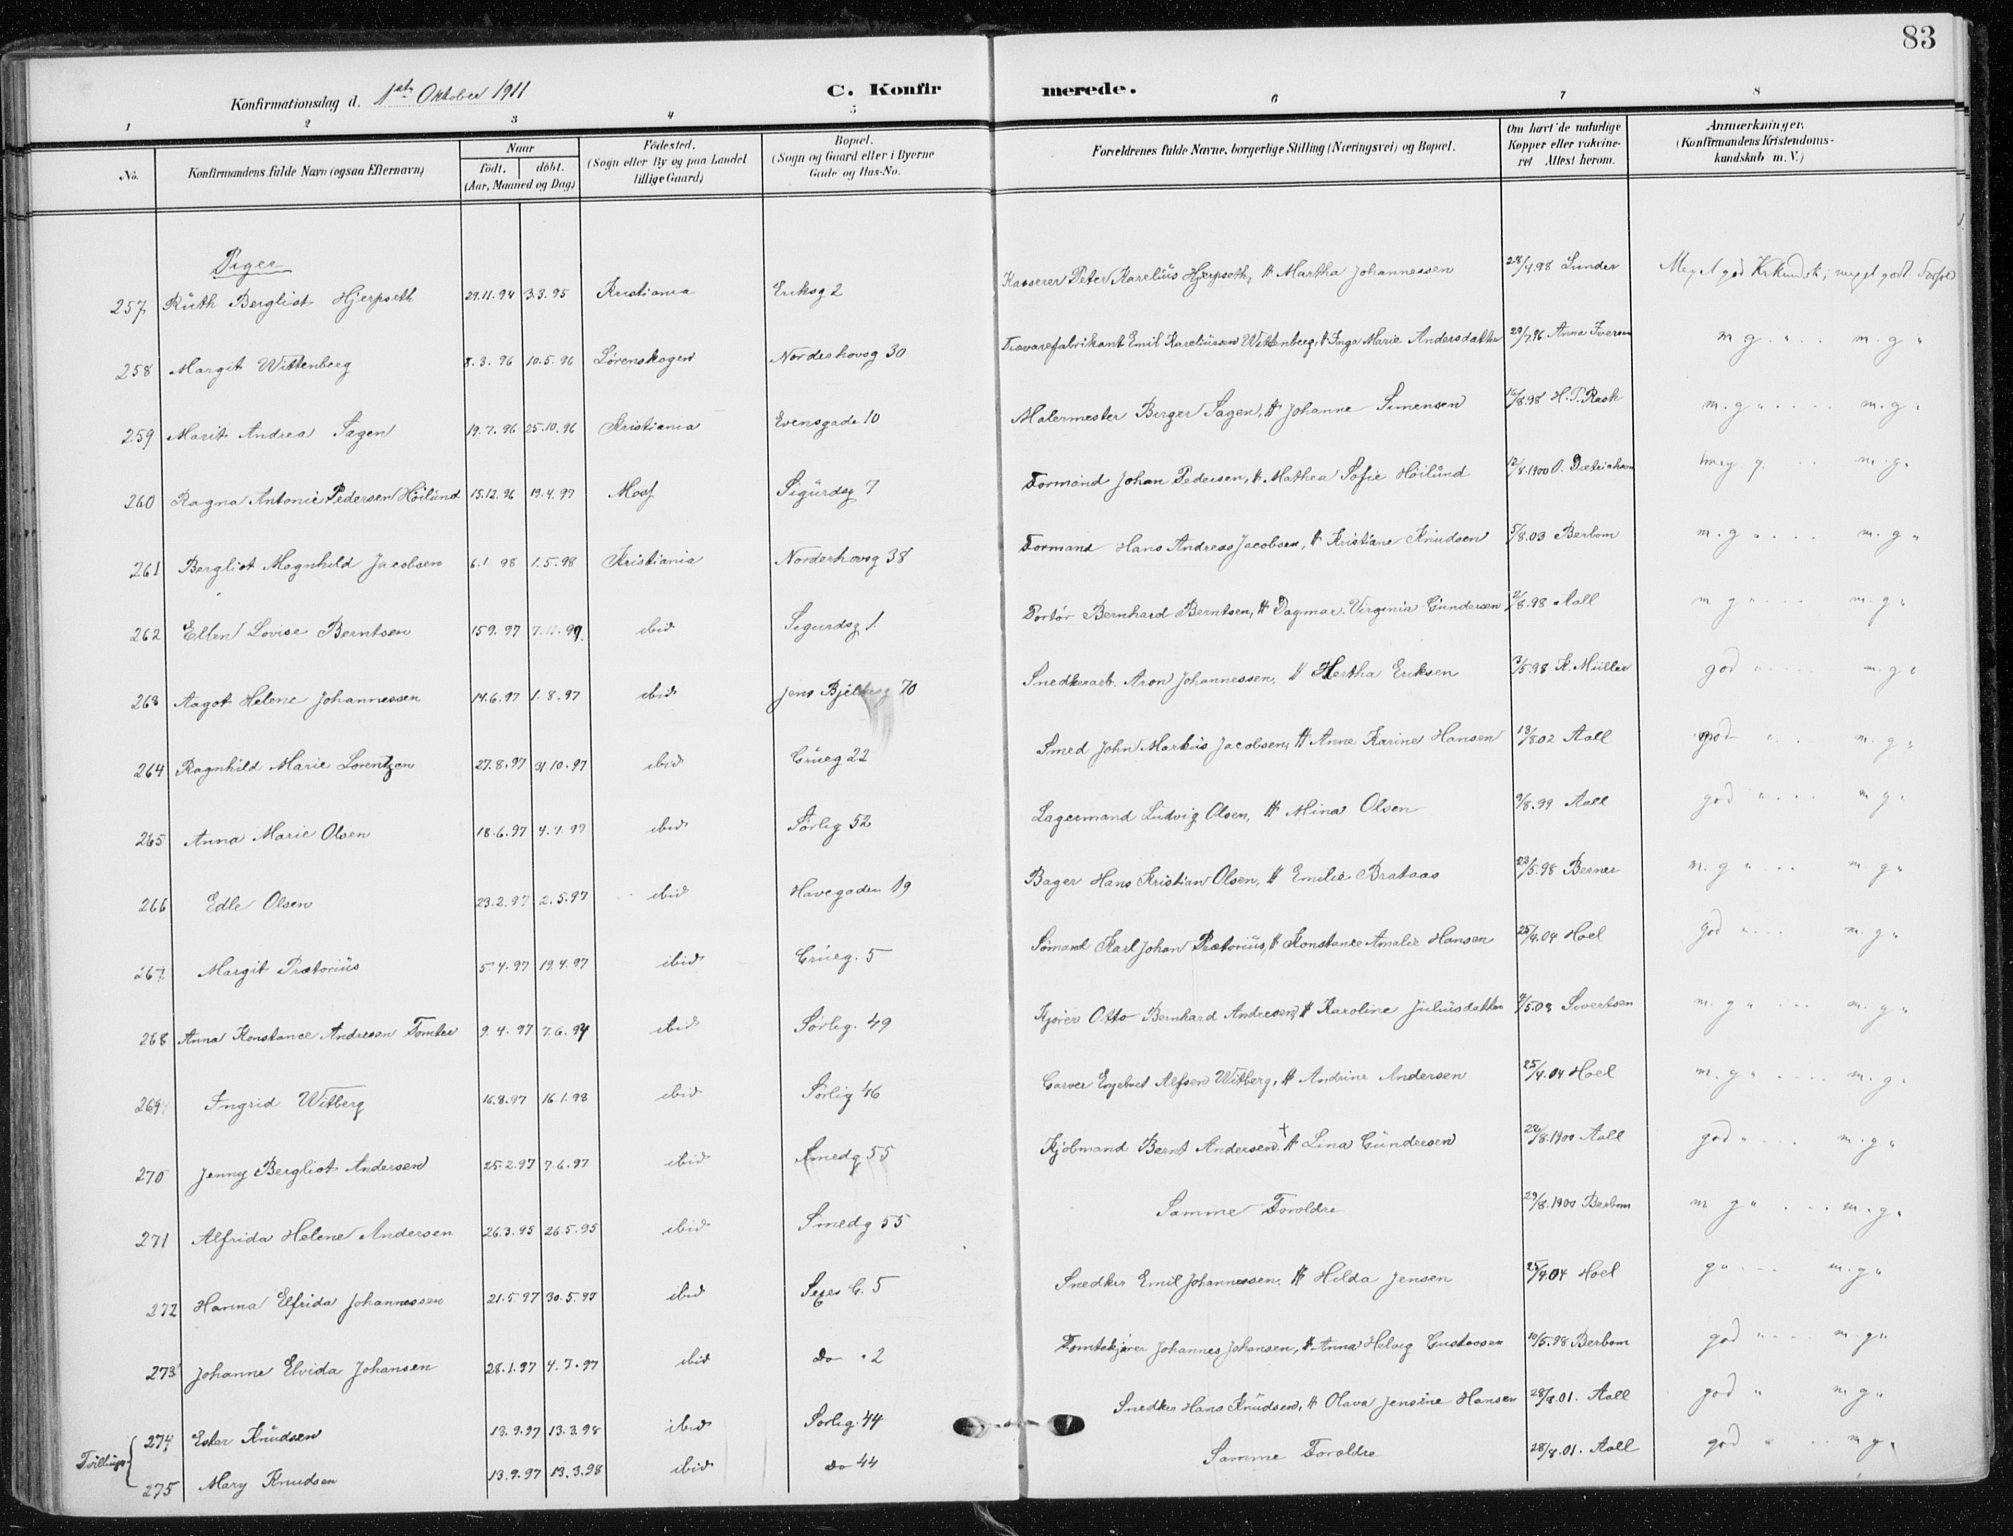 83
Konfirmationsdag d. 1ste Oktober 1911 C. Konfir merede.
1 2 3 4 5 6 7 8
No. Konfirmandens fulde Navn (ogsaa Efternavn) Naar Födt. döbt. (Aar, Maaned og Dag) Födested. (Sogn eller By og paa Landet tillige Gaard) Bopæl. (Sogn og Gaard eller i Byerne Gade og Hus-No. Forældrenes fulde Navne, borgerlige Stilling (Næringsvei) og Bopæl. Om havt de naturlige Kopper eller vakcineret Attest herom. Anmærkninger. (Konfirmandens Kristendomskundskab m. V.)
Piger
257 Ruth Bergliot Hjerpseth 29.11.94 3.3.95 Kristiania Eriksg 2 Kasserer Peter Karelius Hjerpseth, & Martha Johannessen 28/4.98 Lunder Meget god Kr.kundsk; meget godt Forhold
258 Margit Wittenberg 8.3.96 10.5.96 Lørenskogen Norderhovsg 30 Trævarefabrikant Emil Kareliussen Wittenberg, & Inga Marie Andersdatter 29/7.96 Anna Iversen m g " . . m. g "
259 Marit Andrea Sagen 19.7.96 25.10.96 Kristiania Evensgade 10 Malermester Birger Sagen, & Johanne Simensen 16/8.98 H.P. Rask m. g " . . . m. g "
260 Ragna Antonie Pedersen Höilund 15.12.96 19.4.97 Moss Sigurdsg 7 Formand Johan Pedersen, & Mathea Sofie Höilund 12/8.1900 O. Dietrichson meg g. . . m. g.
261 Bergliot Magnhild Jacobsen 6.1.98 1.5.98 Kristiania Norderhovsg 38 Formand Hans Andreas Jacobsen, & Kristiane Knudsen 5/8.03 Berbom m. g " . . . m. g "
262 Ellen Lovise Berntsen 15.9.97 7.11.97 ibid Sigurdsg 1. Portör Bernhard Berntsen, & Dagmar Virginia Gundersen 2/8.98 Aall m g " . . . m. g "
263 Aagot Helene Johannessen 14.6.97 1.8.97 ibid Jens Bjelkesg 70 Snedkerarb. Aron Johannessen, & Hertha Eriksen 3/5.98 K. Müller god " . . . m. g "
264 Ragnhild Marie Lorentzen 27.8.97 31.10.97 ibid Grüneg 22 Smed John Markus Jacobsen, & Anne Karine Hansen 13/8.02 Aall god " . m. g "
265 Anna Marie Olsen 18.6.97 4.7.97 ibid Sörlig 52 Lagermand Ludvig Olsen, & Mina Olsen 9/8.99 Aall god " . . . m g "
266 Edle Olsen 23.2.97 2.5.97 ibid Havegaden 19 Bager Hans Kristian Olsen, & Emilie Brataas 23/5.98 Berner m. g " . . m. g "
267 Margit Prætorius 5.4.97 19.4.97 ibid Grüneg. 5 Sömand Karl Johan Prætorius, & Konstance Amalie Hansen 25/4.04 Hoel god " . . m. g "
268 Anna Konstance Andresen Tomter 9.4.97 7.6.97 ibid Sörlig. 49 Kjörer Otto Bernhard Andresen, & Karoline Juliusdatter 9/5.03 Sivertsen m. g " . . . m. g "
269 Ingrid Witberg 16.8.97 16.1.98 ibid Sörlig 46 Garver Engebret Alfsen Witberg, & Andrine Andersen 25/4.04 Hoel m. g " . . . m. g "
270 Jenny Bergliot Andersen 25.2.97 7.6.97 ibid Smedg 55 Kjöbmand Bernt Andersen†, & Lina Gundersen 22/8.1900 Aall god " . . . m. g "
271 Alfrida Helene Andersen 26.3.95 26.5.95 ibid Smedg 55 Samme Foroldre 29/8.1900 Berbom m g " . . . m. g "
272 Hanna Elfrida Johannessen 21.5.97 30.5.97 ibid Sejers G. 5 Snedker Emil Johannessen, & Hilda Jensen 25/4.04 Hoel g " . . . m. g "
273 Johanne Elvida Johansen 28.1.97 4.7.97 ibid do " 2 Tomtekjörer Johannes Johansen, & Anna Helvig Gustavsen 10/5.98 Berbom god " . . m. g "
274 Ester Knudsen 13.9.97 13.3.98 ibid Sorlig. 44 Snedker Hans Knudsen, & Olava Jensine Hansen 28/8.01. Aall god " m g "
Tvillinger
275 Mary Knudsen 13.9.97 13.3.98 ibid do 44 Samme Foroldre 28/8.01. Aall god " . . m g "